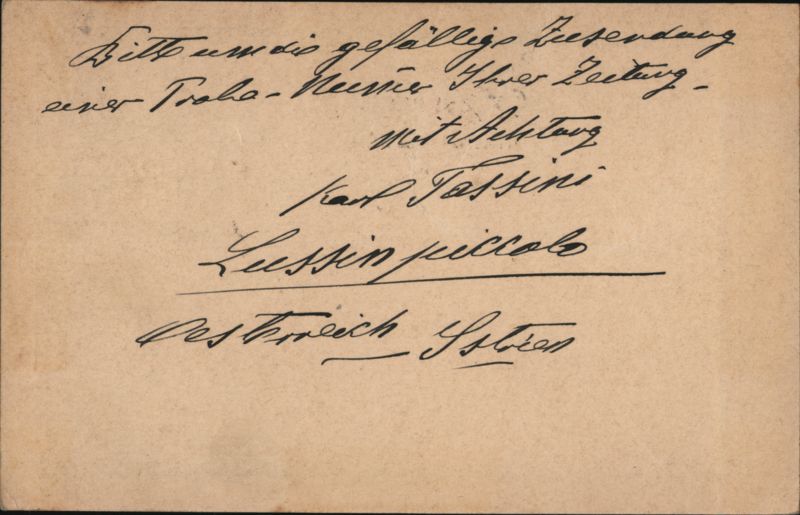 Bitte um die gefällige Zusendung
einer Probe-Numer Ihrer Zeitung -
mit Achtung
Karl Tassini
Lussinpiccolo
Oesterreich Istrien